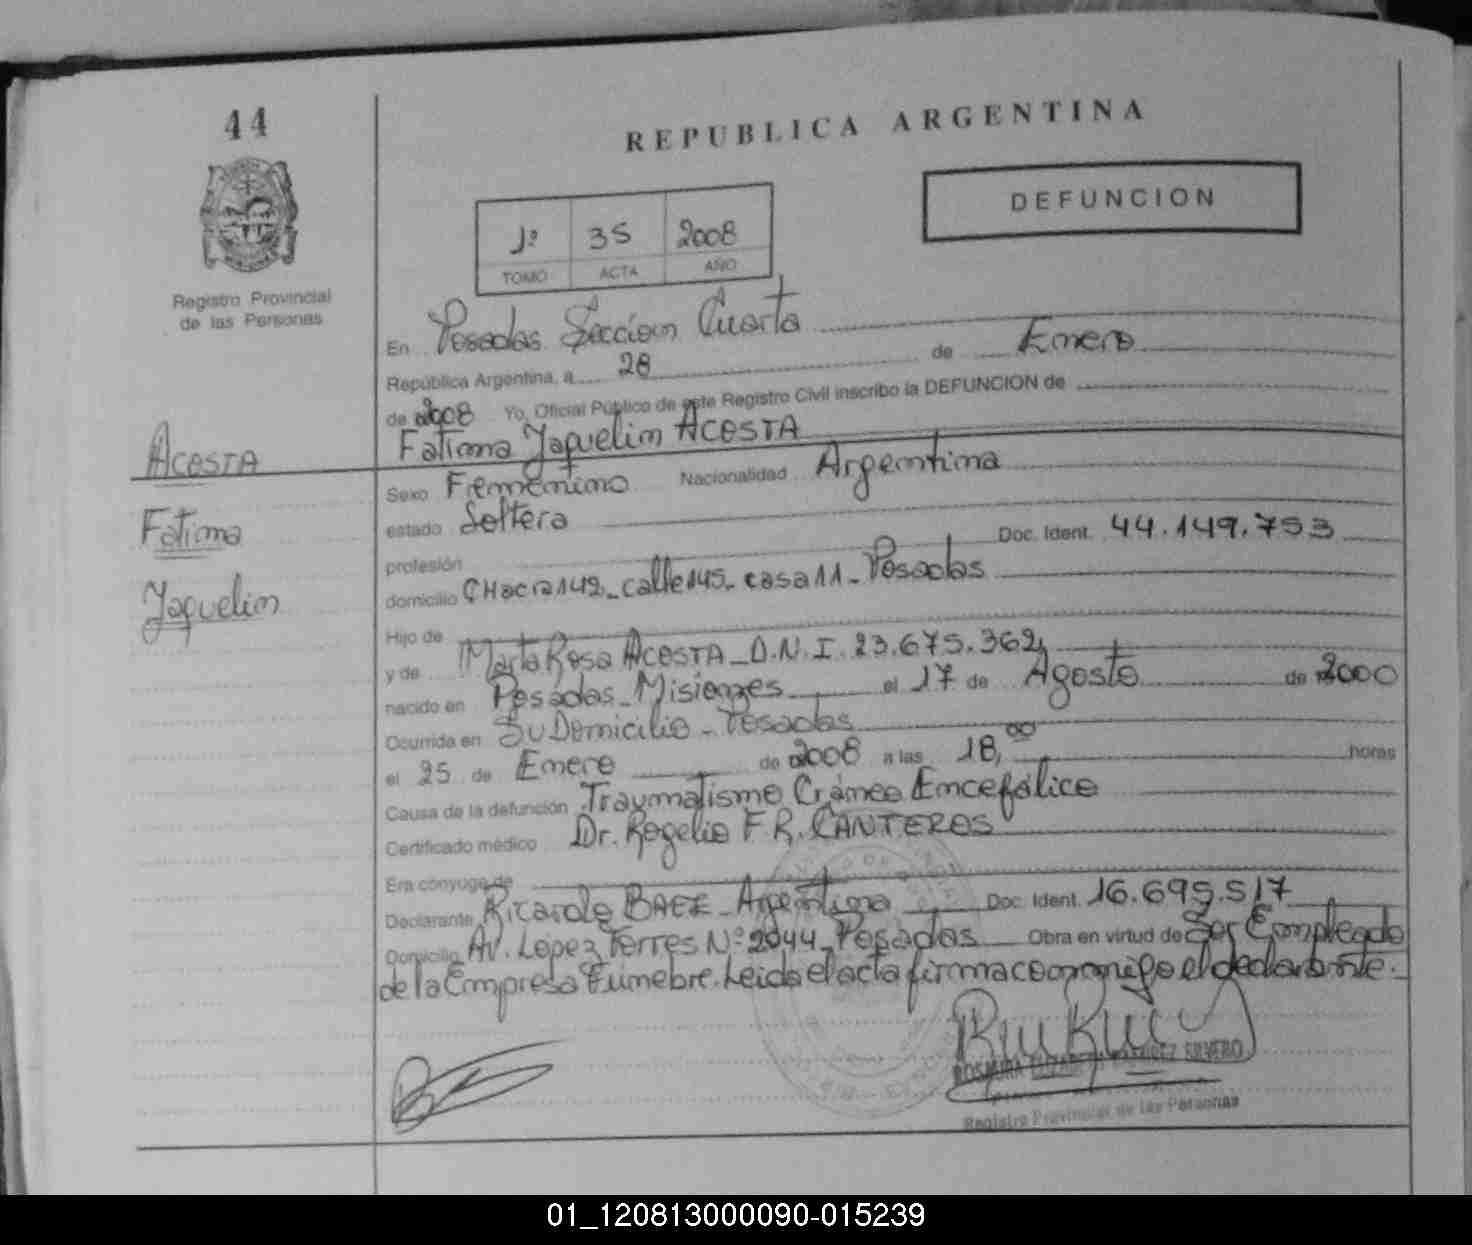 44
REPUBLICA ARGENTINA
DEFUNCION
1º 35 2008
TOMO ACTA AÑO
Registro Provincial
de las Personas
En Posadas Sección Cuarta
República Argentina, a 28 de Enero
de 2008 Yo, Oficial Público de este Registro Civil inscribo la DEFUNCION de
Fatima Jaquelin ACOSTA
ACOSTA
Fatima
Jaquelin
Sexo Femenino Nacionalidad Argentina
estado Soltera
profesión Doc. Ident. 44.149.753
domicilio CHacra 142_ calle 145_ casa 11_ Posadas
Hijo de
y de Marta Rosa ACOSTA_ D.N.I. 23.675.362
nacido en Posadas_Misiones el 17 de Agosto de 2000
Ocurrida en Su Domicilio - Posadas
el 25 de Enero de 2008 a las 18,00 horas
Causa de la defunción Traumatismo Cráneo Encefálico
Certificado médico Dr. Rogelio F.R. CANTEROS
Era cónyuge de
Declarante Ricardo BAEZ_ Argentino Doc. Ident. 16.695.517
Domicilio Av. Lopez Torres Nº 2044_ Posadas Obra en virtud de Ser Empleado
de la Empresa Fúnebre. Leida el acta firma conmigo el declarante.
Registro Provincial de las Personas
01_120813000090-015239